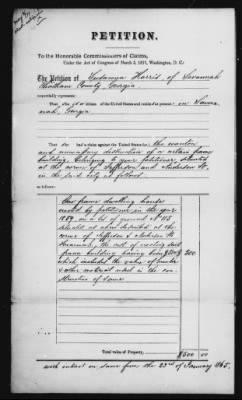 PETITION.
To the Honorable Commissioners of Claims,
Under the Act of Congress of March 3, 1871, Washington, D. C.:
The Petition of Susanna Harris, of Savannah
Chatham County Georgia
respectfully represents:
That she is a citizen of the United States and resides at present in Savan-
nah, Georgia
That she has a claim against the United States the wanton
and unnecessary destruction of a certain frame
building belonging to your petitioner, situated
at the corner of Jefferson and Anderson St.
in the said city as follows:
One frame dwelling house
owned by petitioner in the year
on a lot of ground
situated as above situated at the
corner of Jefferson & Anderson St
Savannah, the cost of erecting said
frame building having been $500
500
which included the value of lumber
& other material used in the con-
struction of same
Total value of Property,
$500 00
with interest on same from the 23rd of January 1865.